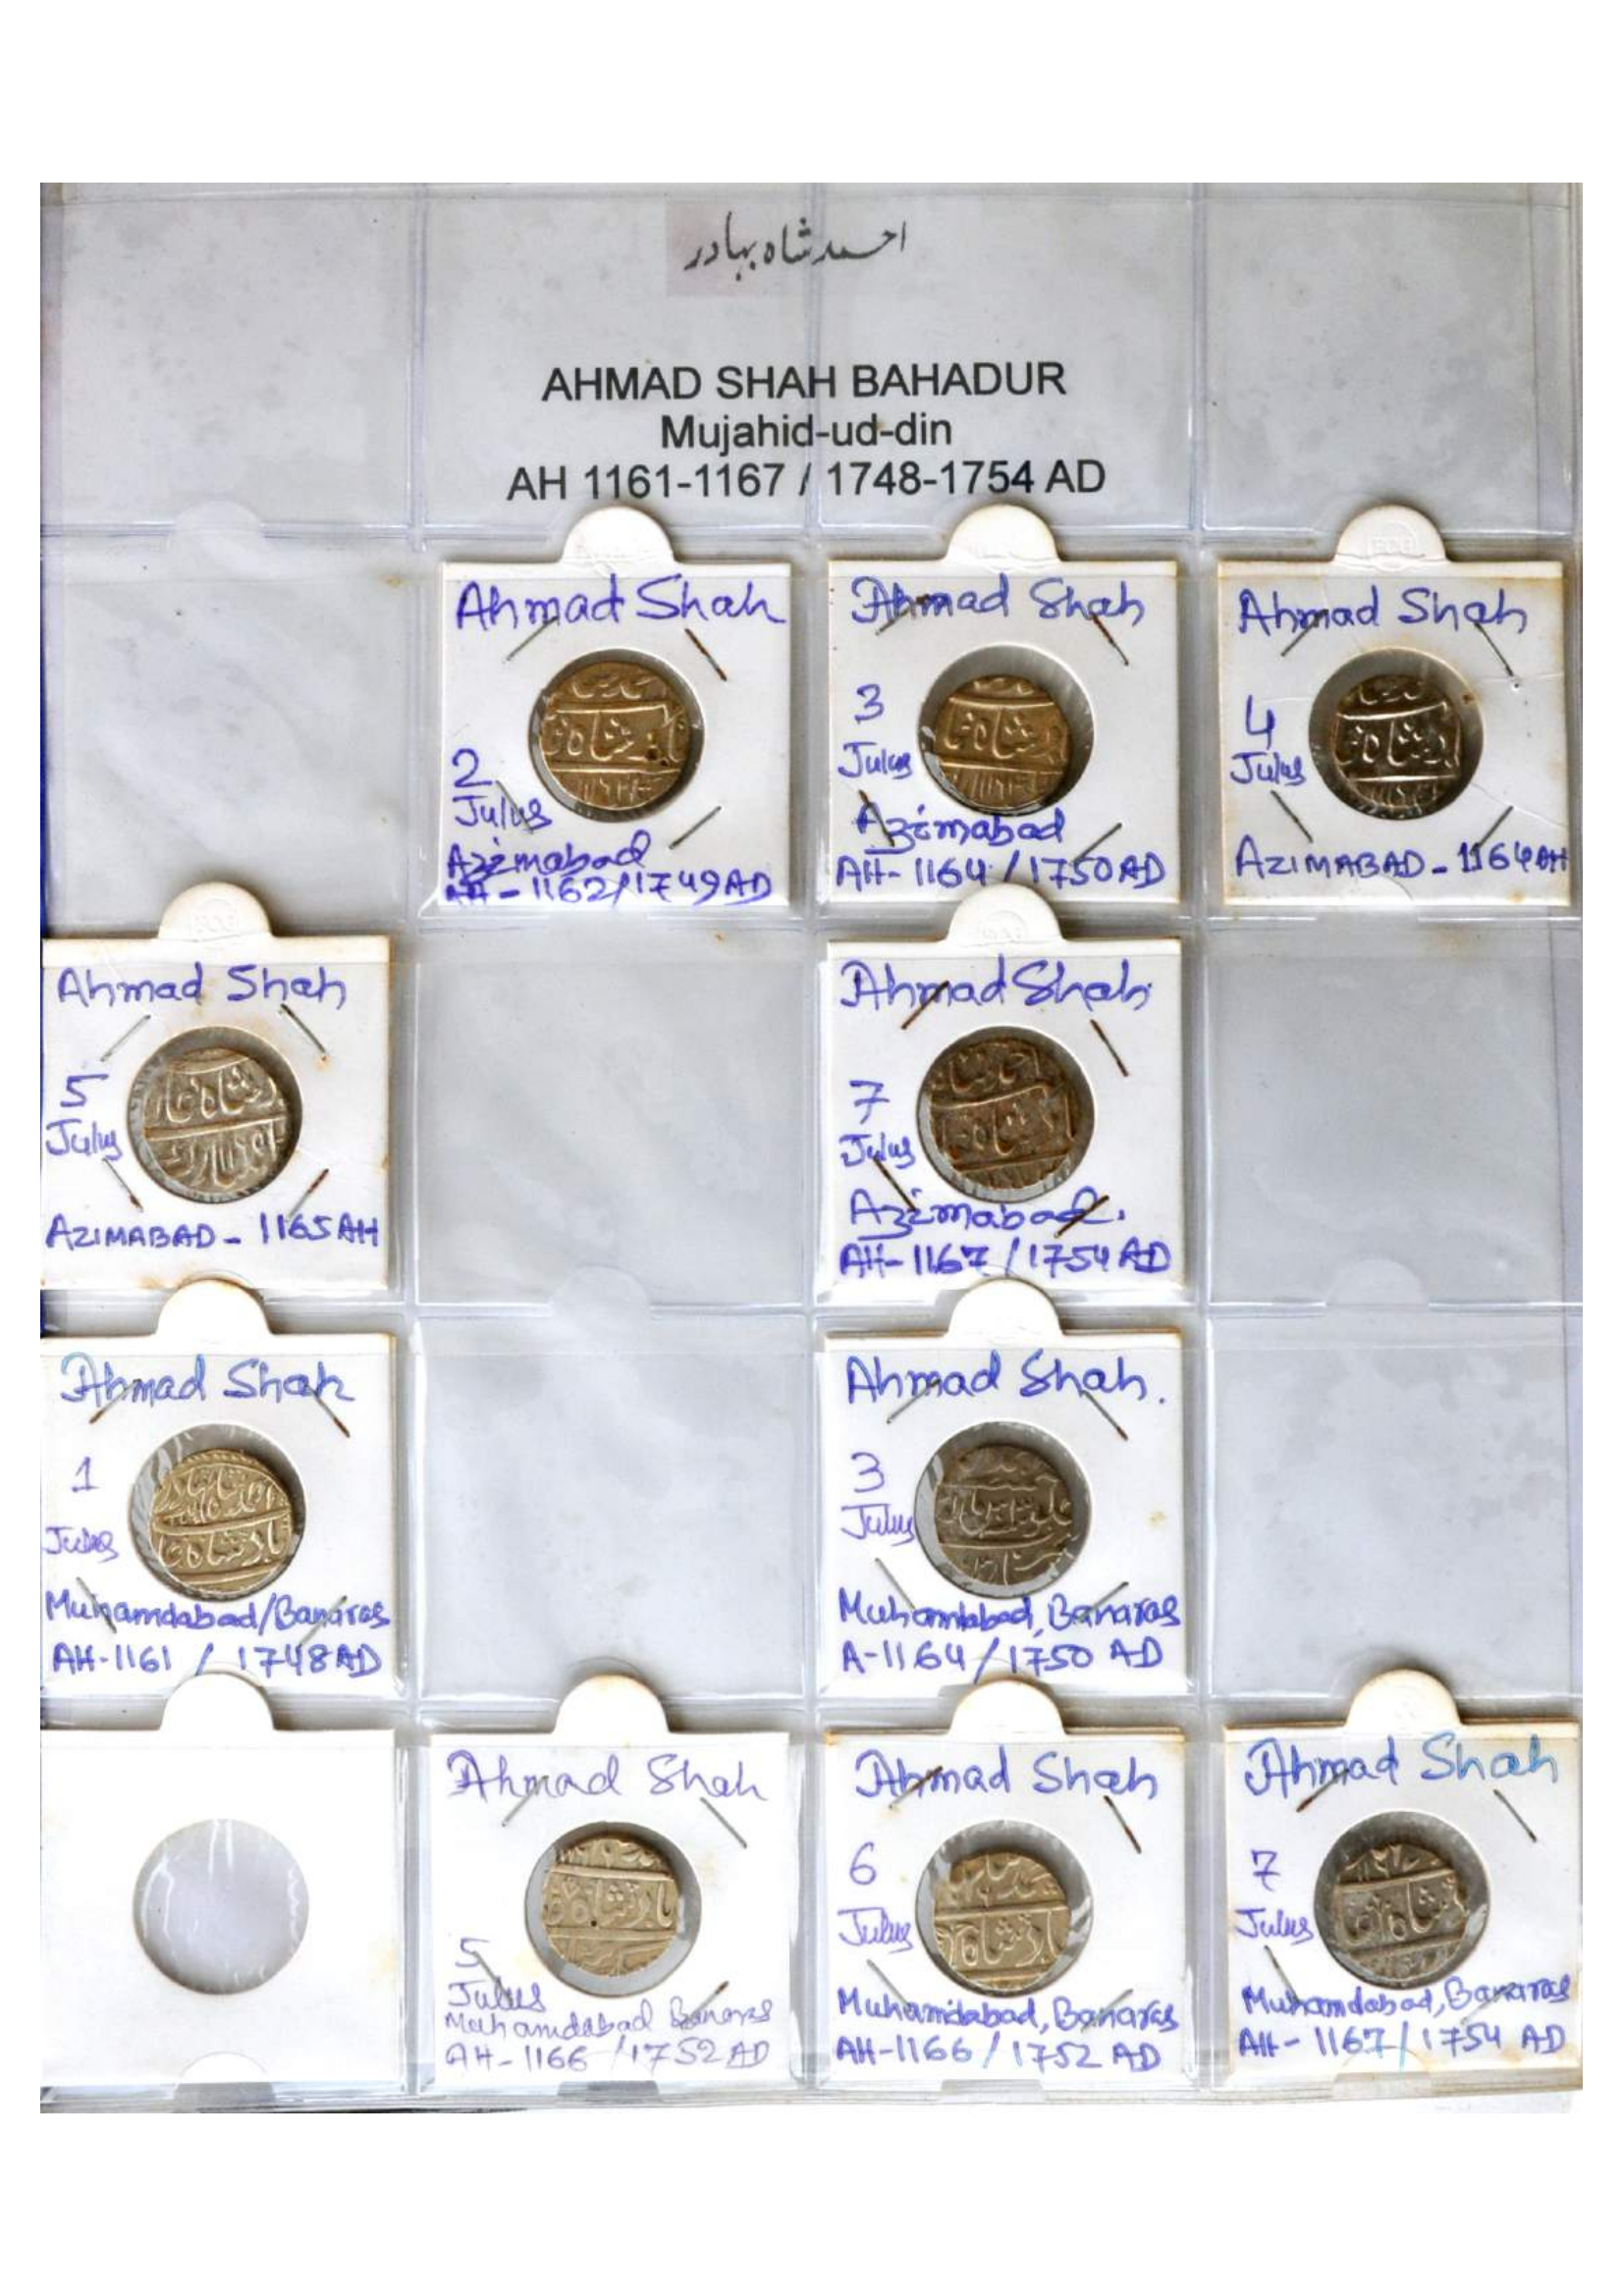 احمد شاہ بہادر
AHMAD SHAH BAHADUR
Mujahid-ud-din
AH 1161-1167 / 1748-1754 AD
Ahmad Shah
2
Julus
Azimabad
AH - 1162/1749AD
Ahmad Shah
3
Julus
Azimabad
AH- 1164 / 1750AD
Ahmad Shah
4
Julus
AZIMABAD - 1164AH
Ahmad Shah
5
Julus
AZIMABAD - 1165AH
Ahmad Shah
7
Julus
Azimabad.
AH- 1167 / 1754 AD
Ahmad Shah
1
Julus
Muhamdabad/Banaras
AH-1161 / 1748AD
Ahmad Shah.
3
Julus
Muhamdabad, Banaras
A-1164/1750 AD
Ahmad Shah
5
Julus
Muhamdabad Banaras
AH-1166 /1752AD
Ahmad Shah
6
Julus
Muhamdabad, Banaras
AH-1166 / 1752 AD
Ahmad Shah
7
Julus
Muhamdabad, Banaras
AH- 1167/1754 AD